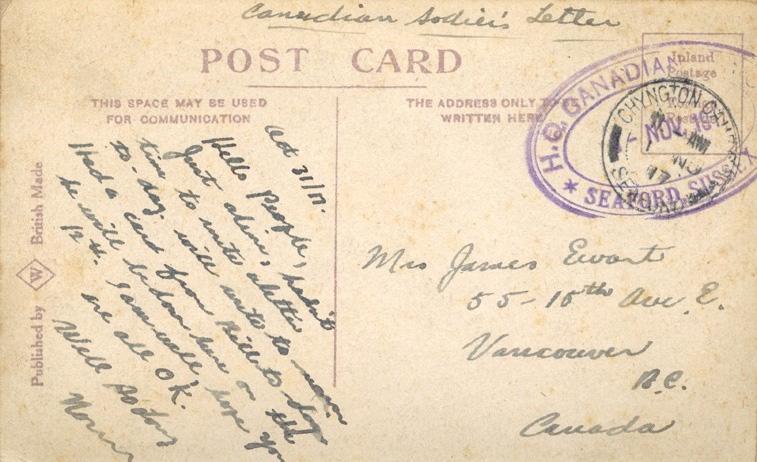 Canadian Sodier's Letter
POST CARD
Inland
Postage
THIS SPACE MAY BE USED
FOR COMMUNICATION
THE ADDRESS ONLY TO BE
WRITTEN HERE
H.Q. CANADIAN
NOV 1917
* SEAFORD, SUSSEX
CHYNGTON CAMP
SEAFORD
NO
17
Oct 31/17.
Hello People,
Just alive, hadn't
time to write a letter
to-day will write to-morrow
Had a card from Bill to say
he will be down here on the
12th. I am well, hope you
are all O.K.
Well So long
Norm
Mrs James Ewart
55-10th Ave E.
Vancouver
B.C.
Canada
Published by W British Made